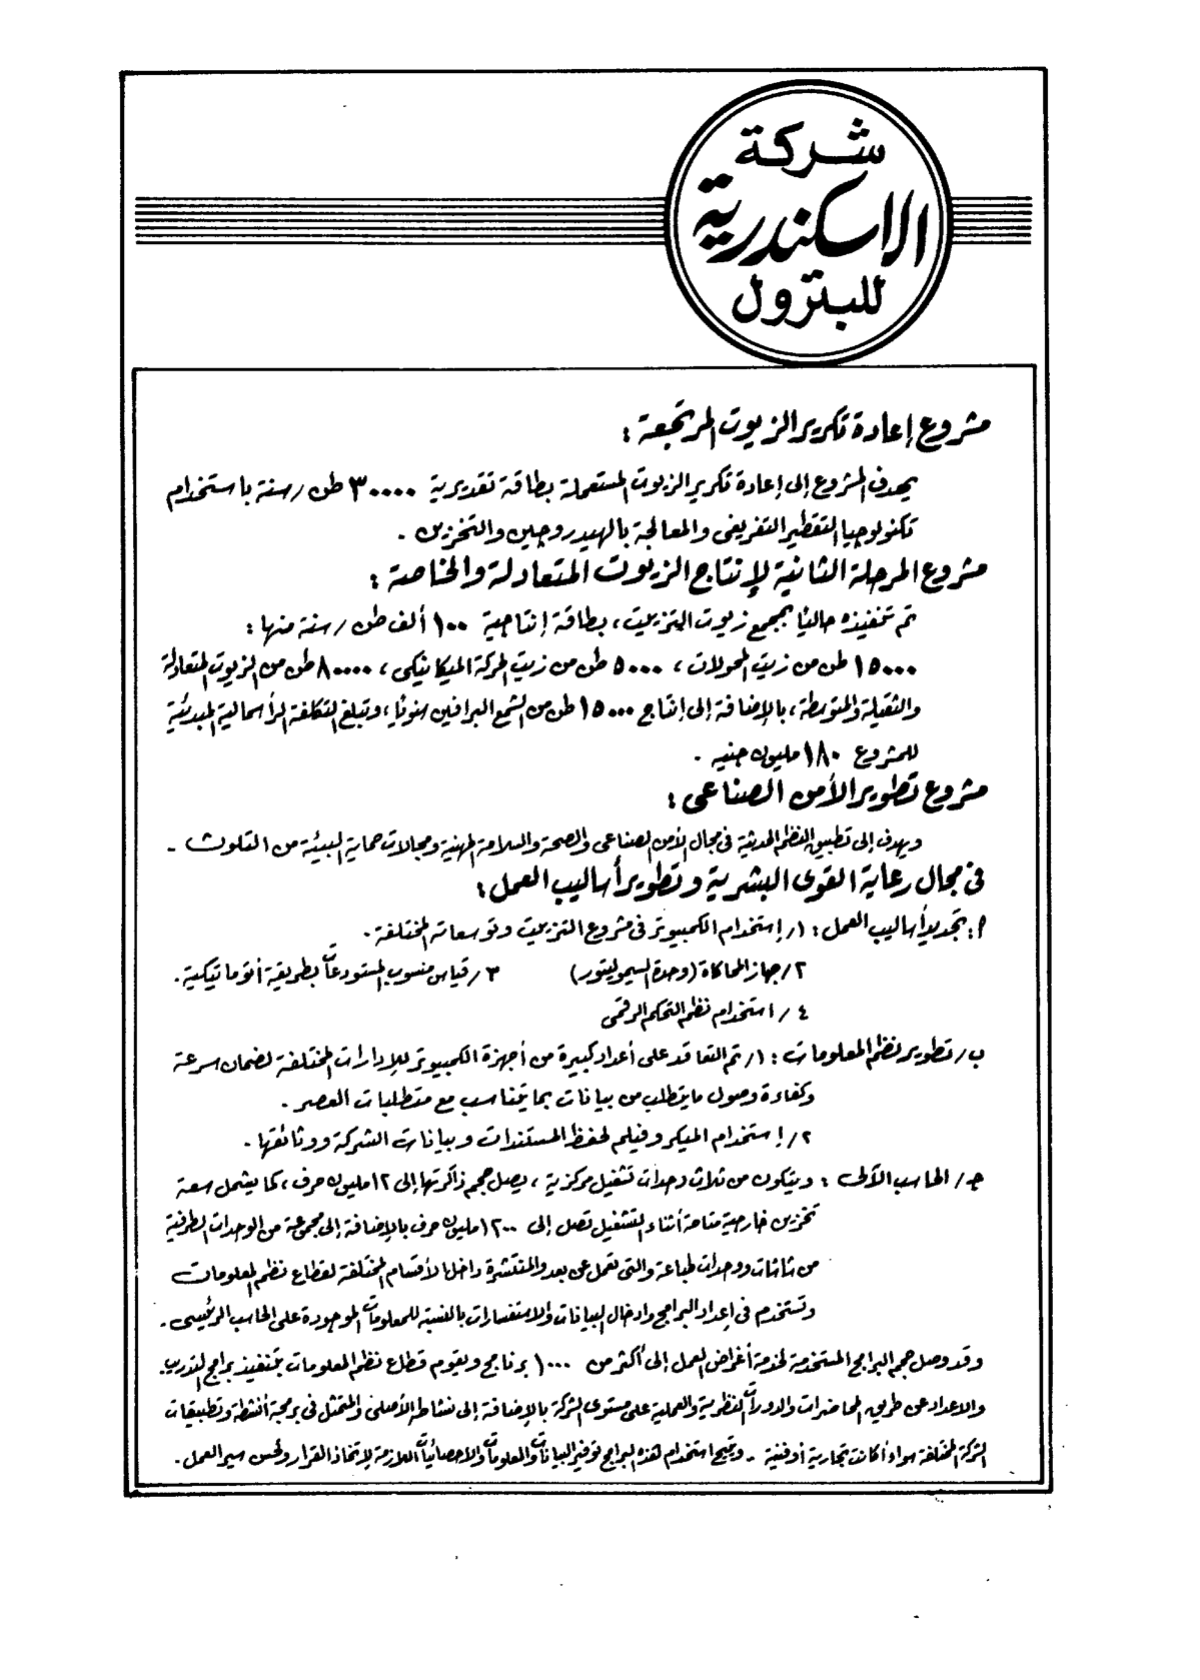 شركة
الاسكندرية
للبترول
مشروع إعادة تكرير الزيوت المرتجعة :
يهدف المشروع إلى إعادة تكرير الزيوت المستعملة بطاقة تقديرية ٣٠٠٠٠ طن / سنة باستخدام
تكنولوجيا التقطير التفريغى والمعالجة بالهيدروجين والتخزين .
مشروع المرحلة الثانية لإنتاج الزيوت المتعادلة والخاصة :
تم تنفيذه حاليًا بمجمع زيوت التزييت ، بطاقة إنتاجية ١٠٠ ألف طن / سنة منها :
١٥٠٠٠ طن من زيت المحولات ، ٥٠٠٠ طن من زيت الحركة الميكانيكى ، ٨٠٠٠٠ طن من الزيوت المتعادلة
والثقيلة والمتوسطة ، بالإضافة إلى إنتاج ١٥٠٠٠ طن من الشمع البرافين سنويًا ، وتبلغ التكلفة الرأسمالية المبدئية
للمشروع ١٨٠ مليون جنيه .
مشروع تطوير الأمن الصناعى :
ويهدف إلى تطبيق النظم الحديثة فى مجال الأمن الصناعى والصحة والسلامة المهنية ومجالات حماية البيئة من التلوث .
فى مجال رعاية القوى البشرية وتطوير أساليب العمل :
أ : تجديد أساليب العمل : ١/ إستخدام الكمبيوتر فى مشروع التزييت وتوسعاته المختلفة .
٢/ جهاز المحاكاة (وحدة السيموليتور) ٣/ قياس منسوب المستودعات بطريقة أتوماتيكية .
٤/ استخدام نظم التحكم الرقمى
ب/ تطوير نظم المعلومات : ١/ تم التعاقد على أعداد كبيرة من أجهزة الكمبيوتر للإدارات المختلفة لضمان سرعة
وكفاءة وصول ما يتطلب من بيانات بما يتناسب مع متطلبات العصر .
٢/ إستخدام الميكروفيلم لحفظ المستندات وبيانات الشركة ووثائقها .
ج/ الحاسب الآلى : ويتكون من ثلاث وحدات تشغيل مركزية ، يصل حجم ذاكرتها إلى ١٢ مليون حرف ، كما يشمل سعة
تخزين خارجية متاحة أثناء التشغيل تصل إلى ١٢٠٠ مليون حرف بالإضافة إلى مجموعة من الوحدات الطرفية
من شاشات ووحدات طباعة والتى تعمل عن بعد والمنتشرة داخل الأقسام المختلفة لقطاع نظم المعلومات
وتستخدم فى إعداد البرامج وادخال البيانات والاستفسارات بالنسبة للمعلومات الموجودة على الحاسب الرئيسى .
وقد وصل حجم البرامج المستخدمة لخدمة أغراض العمل إلى أكثر من ١٠٠٠ برنامج ويقوم قطاع نظم المعلومات بتنفيذ برامج التدريب
والاعداد عن طريق المحاضرات والدورات النظرية والعملية على مستوى الشركة بالإضافة إلى نشاطه الأصلى والمتمثل فى برمجة أنشطة وتطبيقات
الشركة المختلفة سواء أكانت تجارية أو فنية . ويتيح استخدام هذه البرامج توفير البيانات والمعلومات والاحصائيات اللازمة لإتخاذ القرار وحسن سير العمل .